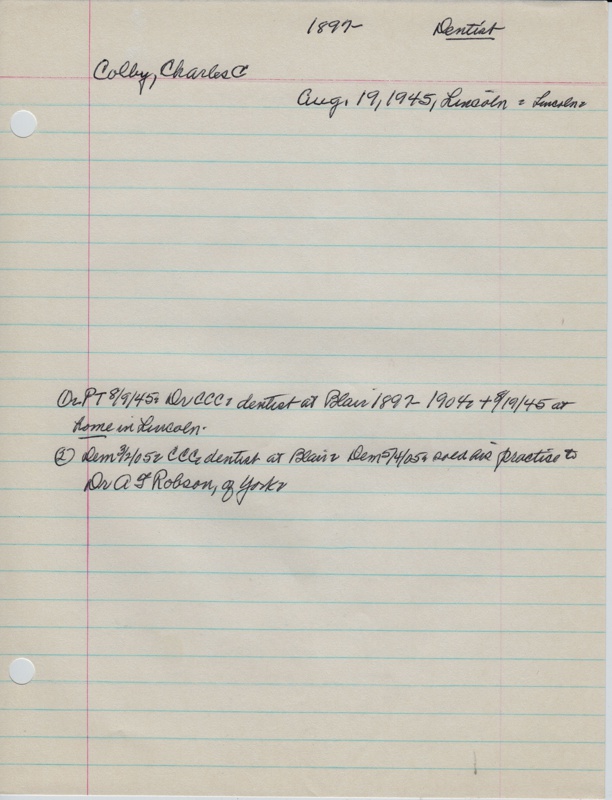 1897- Dentist
Colby, Charles C
Aug. 19, 1945, Lincoln = Lincoln=
① PT 8/9/45: Dr CCC: dentist at Blair 1897- 1904: + 8/19/45 at
home in Lincoln.
② Dem 3/2/05: CCC: dentist at Blair: Dem 5/4/05: sold his practise to
Dr A F Robson, of York: